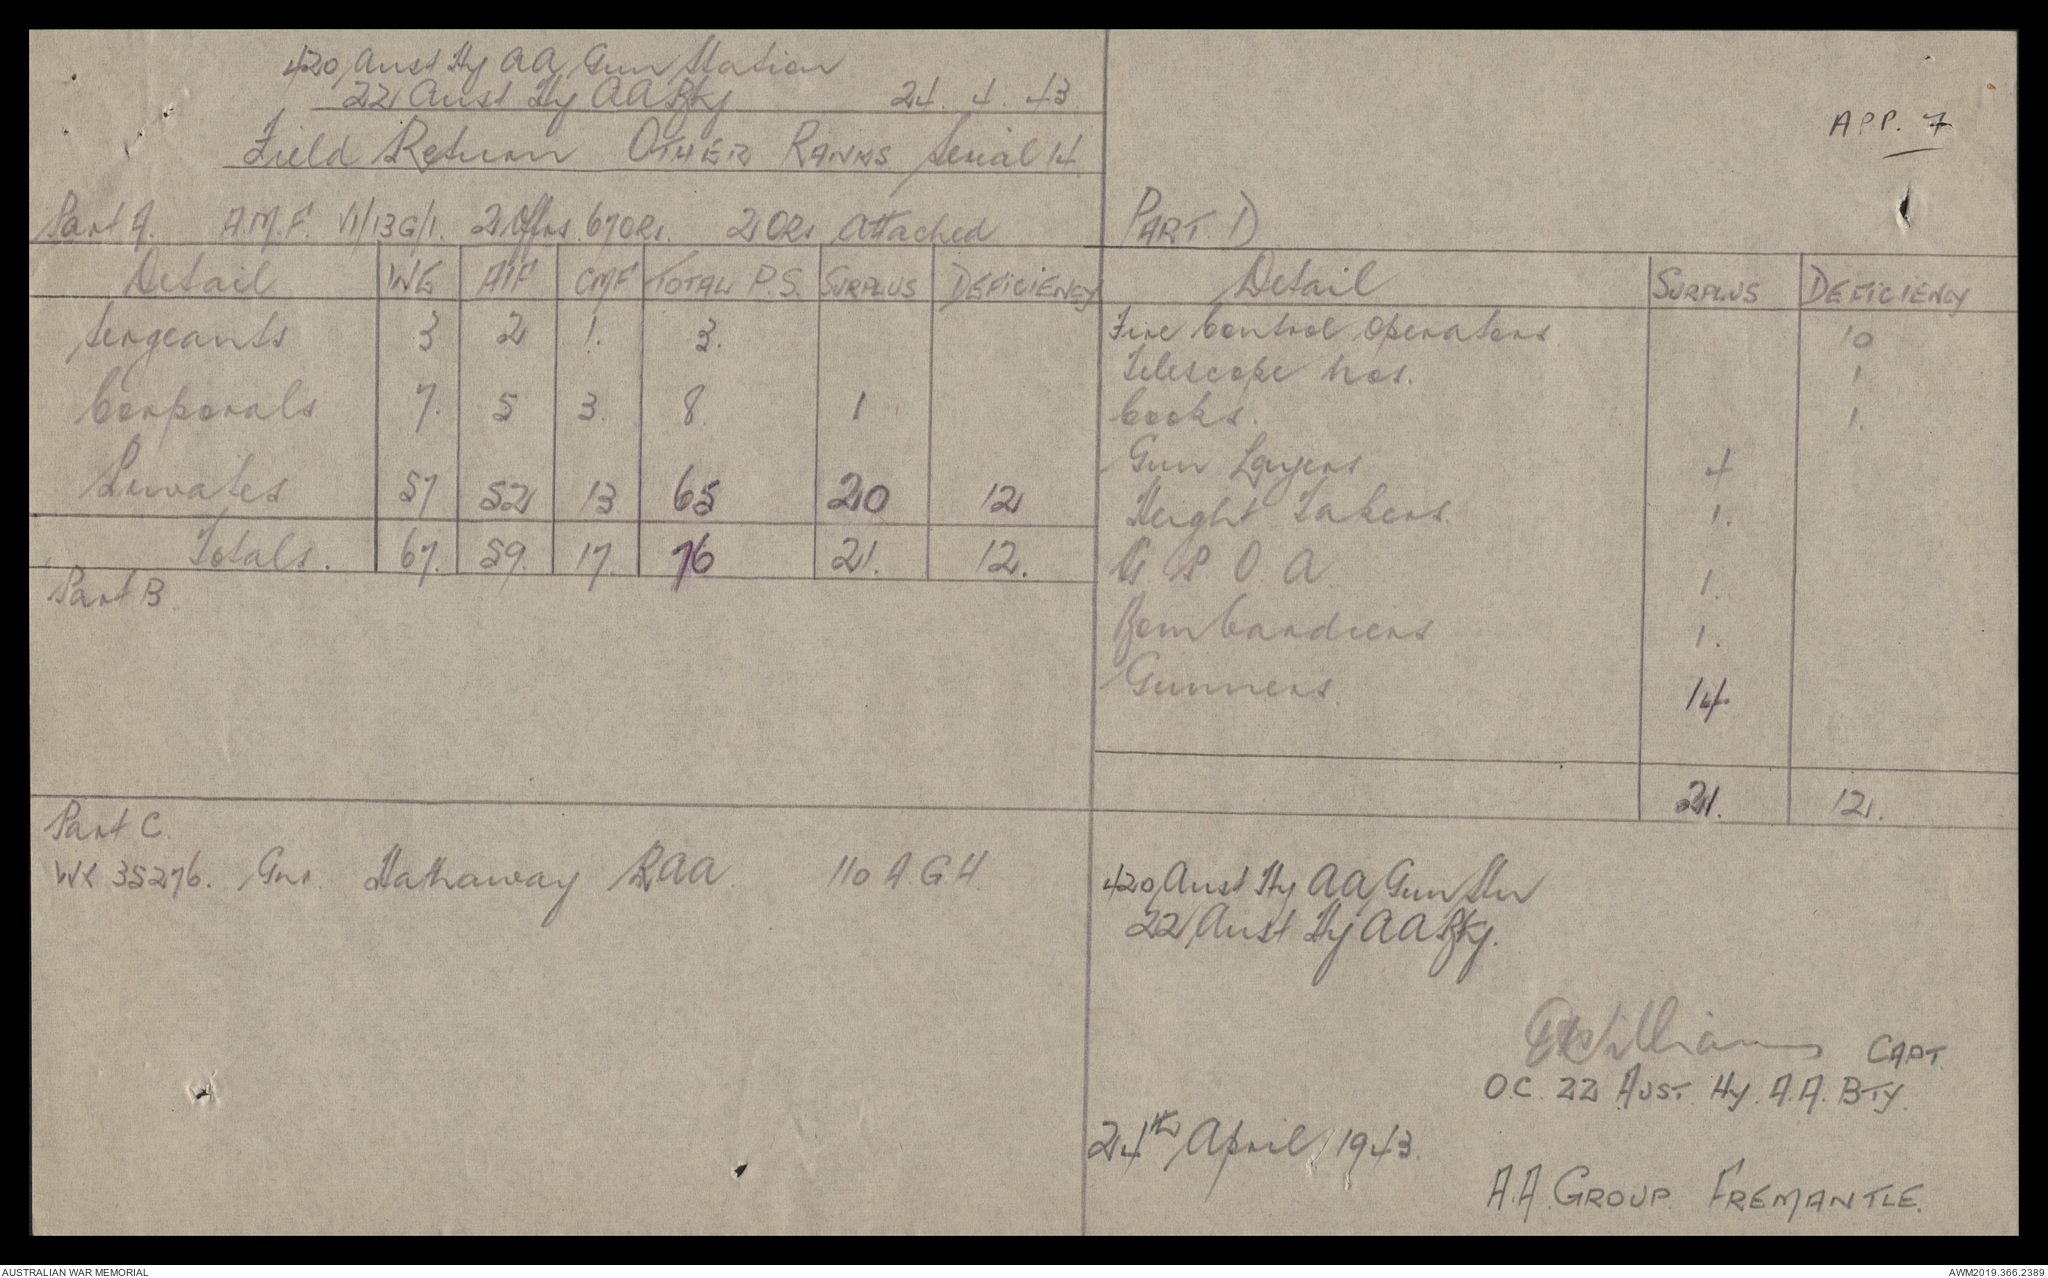 420 Aust Hy AA Gun Station
22 Aust Hy AA Bty 24. 4. 43
Field Return OTHER RANKS Serial 14
APP. 7
Part A. A.M.F. VI/13G/1. 2 Offrs. 67 ORs. 2 ORs attached
Detail WE AIF CMF TOTAL P.S. SURPLUS DEFICIENCY
Sergeants 3 2 1. 3.
Corporals 7. 5 3. 8. 1
Privates 57 52 13 65 20 12
Totals. 67. 59. 17. 76 21. 12.
Part B.
Part C.
WX 35276. Gnr. Hathaway RAA. 110 A.G.H.
PART. D
Detail SURPLUS DEFICIENCY
Fire Control Operators 10
Telescope nos. 1
Cooks. 1.
Gun Layers 4
Height Takers. 1.
G. P. O. A. 1.
Bombardiers 1.
Gunners. 14
21. 12.
420 Aust Hy AA Gun Stn
22 Aust Hy AA Bty.
Williams CAPT.
O.C. 22 AUST. Hy. A.A. BTY.
24th April 1943.
A.A. GROUP. FREMANTLE.
AUSTRALIAN WAR MEMORIAL
AWM2019.366.2389